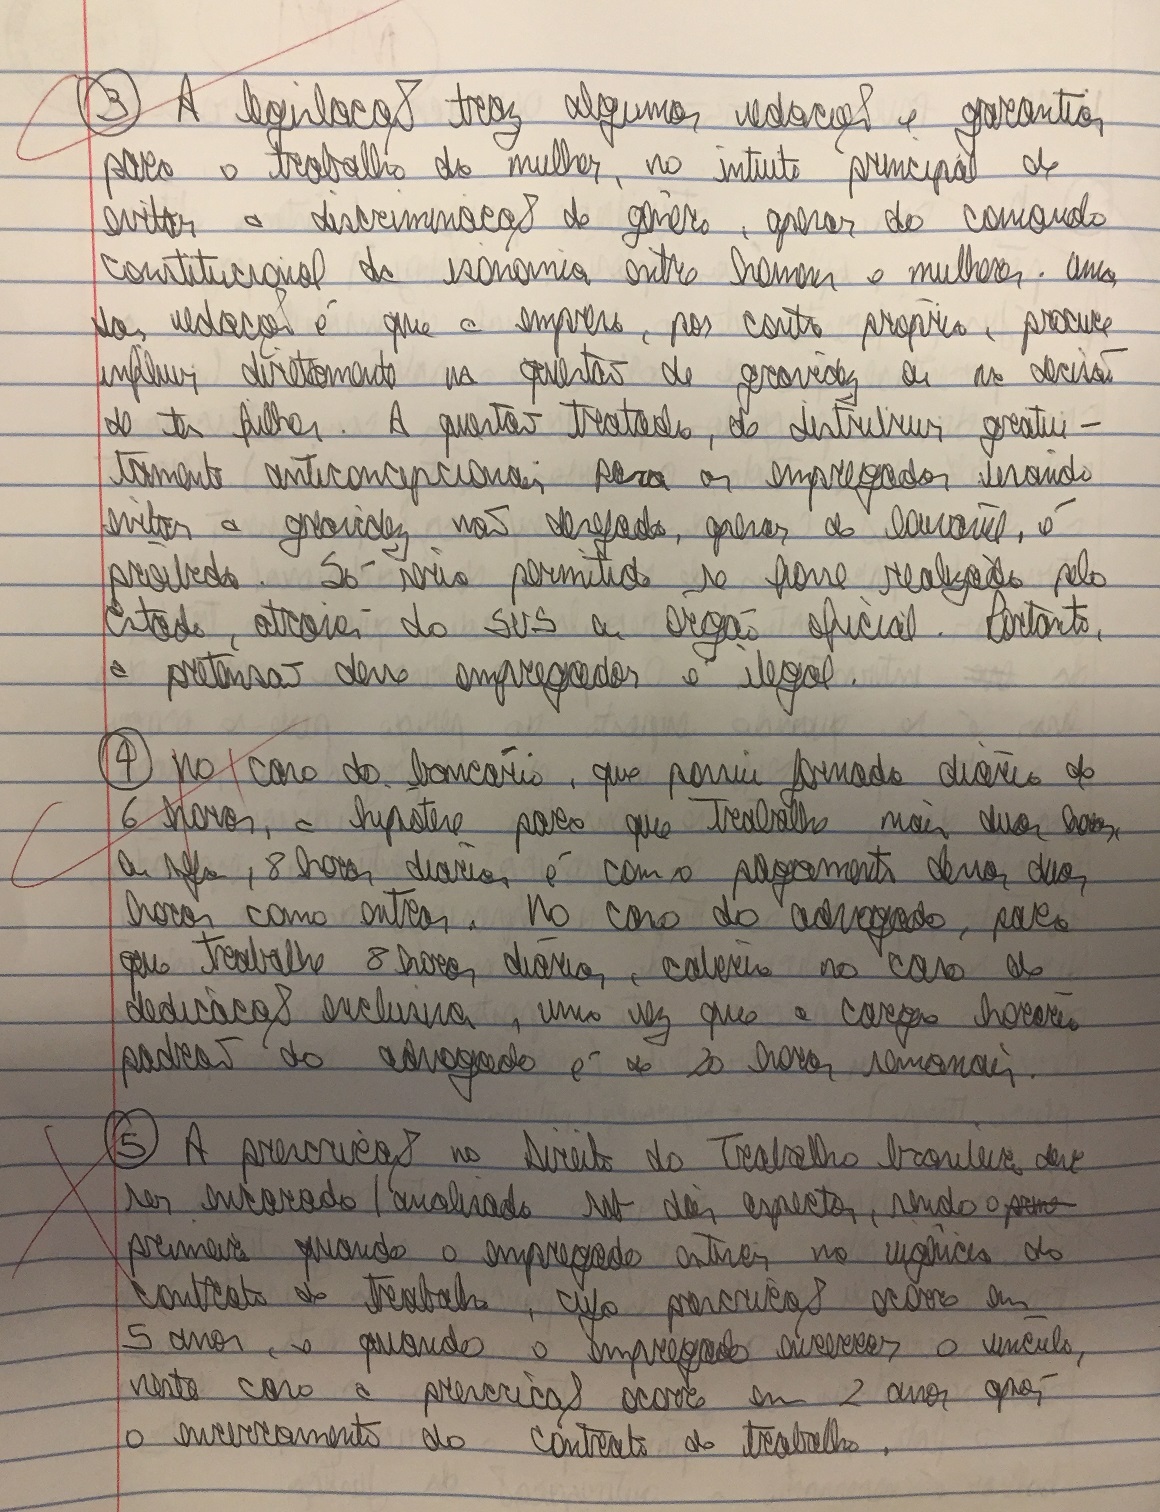 ③ A legislação traz algumas vedações e garantias
para o trabalho da mulher, no intuito principal de
evitar a discriminação de gênero, apesar do comando
constitucional da isonomia entre homens e mulheres. Uma
das vedações é que a empresa, por conta própria, procure
influir diretamente na questão da gravidez ou na decisão
de ter filhos. A questão tratada, de distribuir gratui-
tamente anticoncepcionais para as empregadas visando
evitar a gravidez não desejada, apesar de louvável, é
proibida. Só seria permitido se fosse realizado pelo
Estado, através do SUS ou órgão oficial. Portanto,
a pretensão desse empregador é ilegal.
④ No caso do bancário, que possui jornada diária de
6 horas, a hipótese para que trabalhe mais duas horas,
ou seja, 8 horas diárias é com o pagamento dessas duas
horas como extras. No caso do advogado, para
que trabalhe 8 horas diárias, caberia no caso de
dedicação exclusiva, uma vez que a carga horária
padrão do advogado é de 20 horas semanais.
⑤ A prescrição no Direito do Trabalho brasileiro deve
ser encarada/analisada sob dois aspectos, sendo o
primeiro quando o empregado estiver na vigência do
contrato de trabalho, cuja prescrição ocorre em
5 anos, e quando o empregado encerrar o vínculo,
neste caso a prescrição ocorre em 2 anos após
o encerramento do contrato de trabalho.